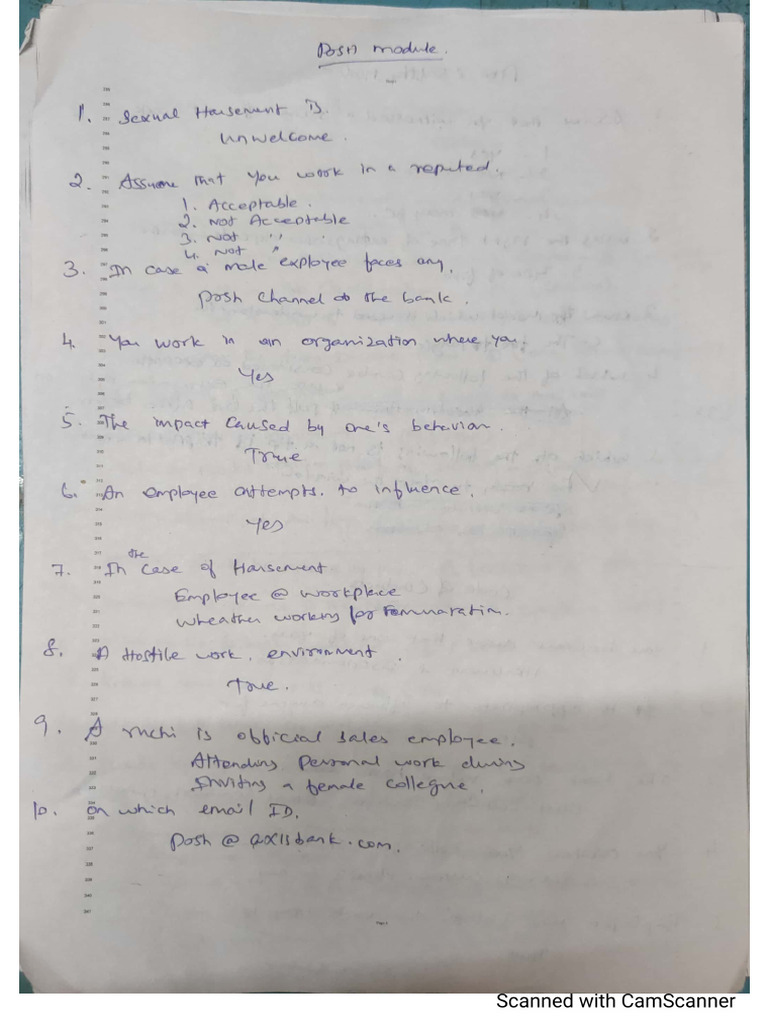 Posh module.
1. Sexual Harsement is.
unwelcome.
2. Assume that you work in a reputed.
1. Acceptable.
2. Not Acceptable
3. Not "
4. Not "
3. In case a male exployee faces any,
Posh channel the bank.
4. You work in an organization where you
Yes
5. The impact caused by one's behavior.
True
6. An employee attempts. to influence.
Yes
7. In the case of Harsement
Employee @ workplace
wheather working for
8. A Hostile work. environment.
True.
9. A ruchi is official sales employee.
Attending personal work during
Inviting a female collegue.
10. on which email ID.
Posh @ axisbank.com.
Scanned with CamScanner